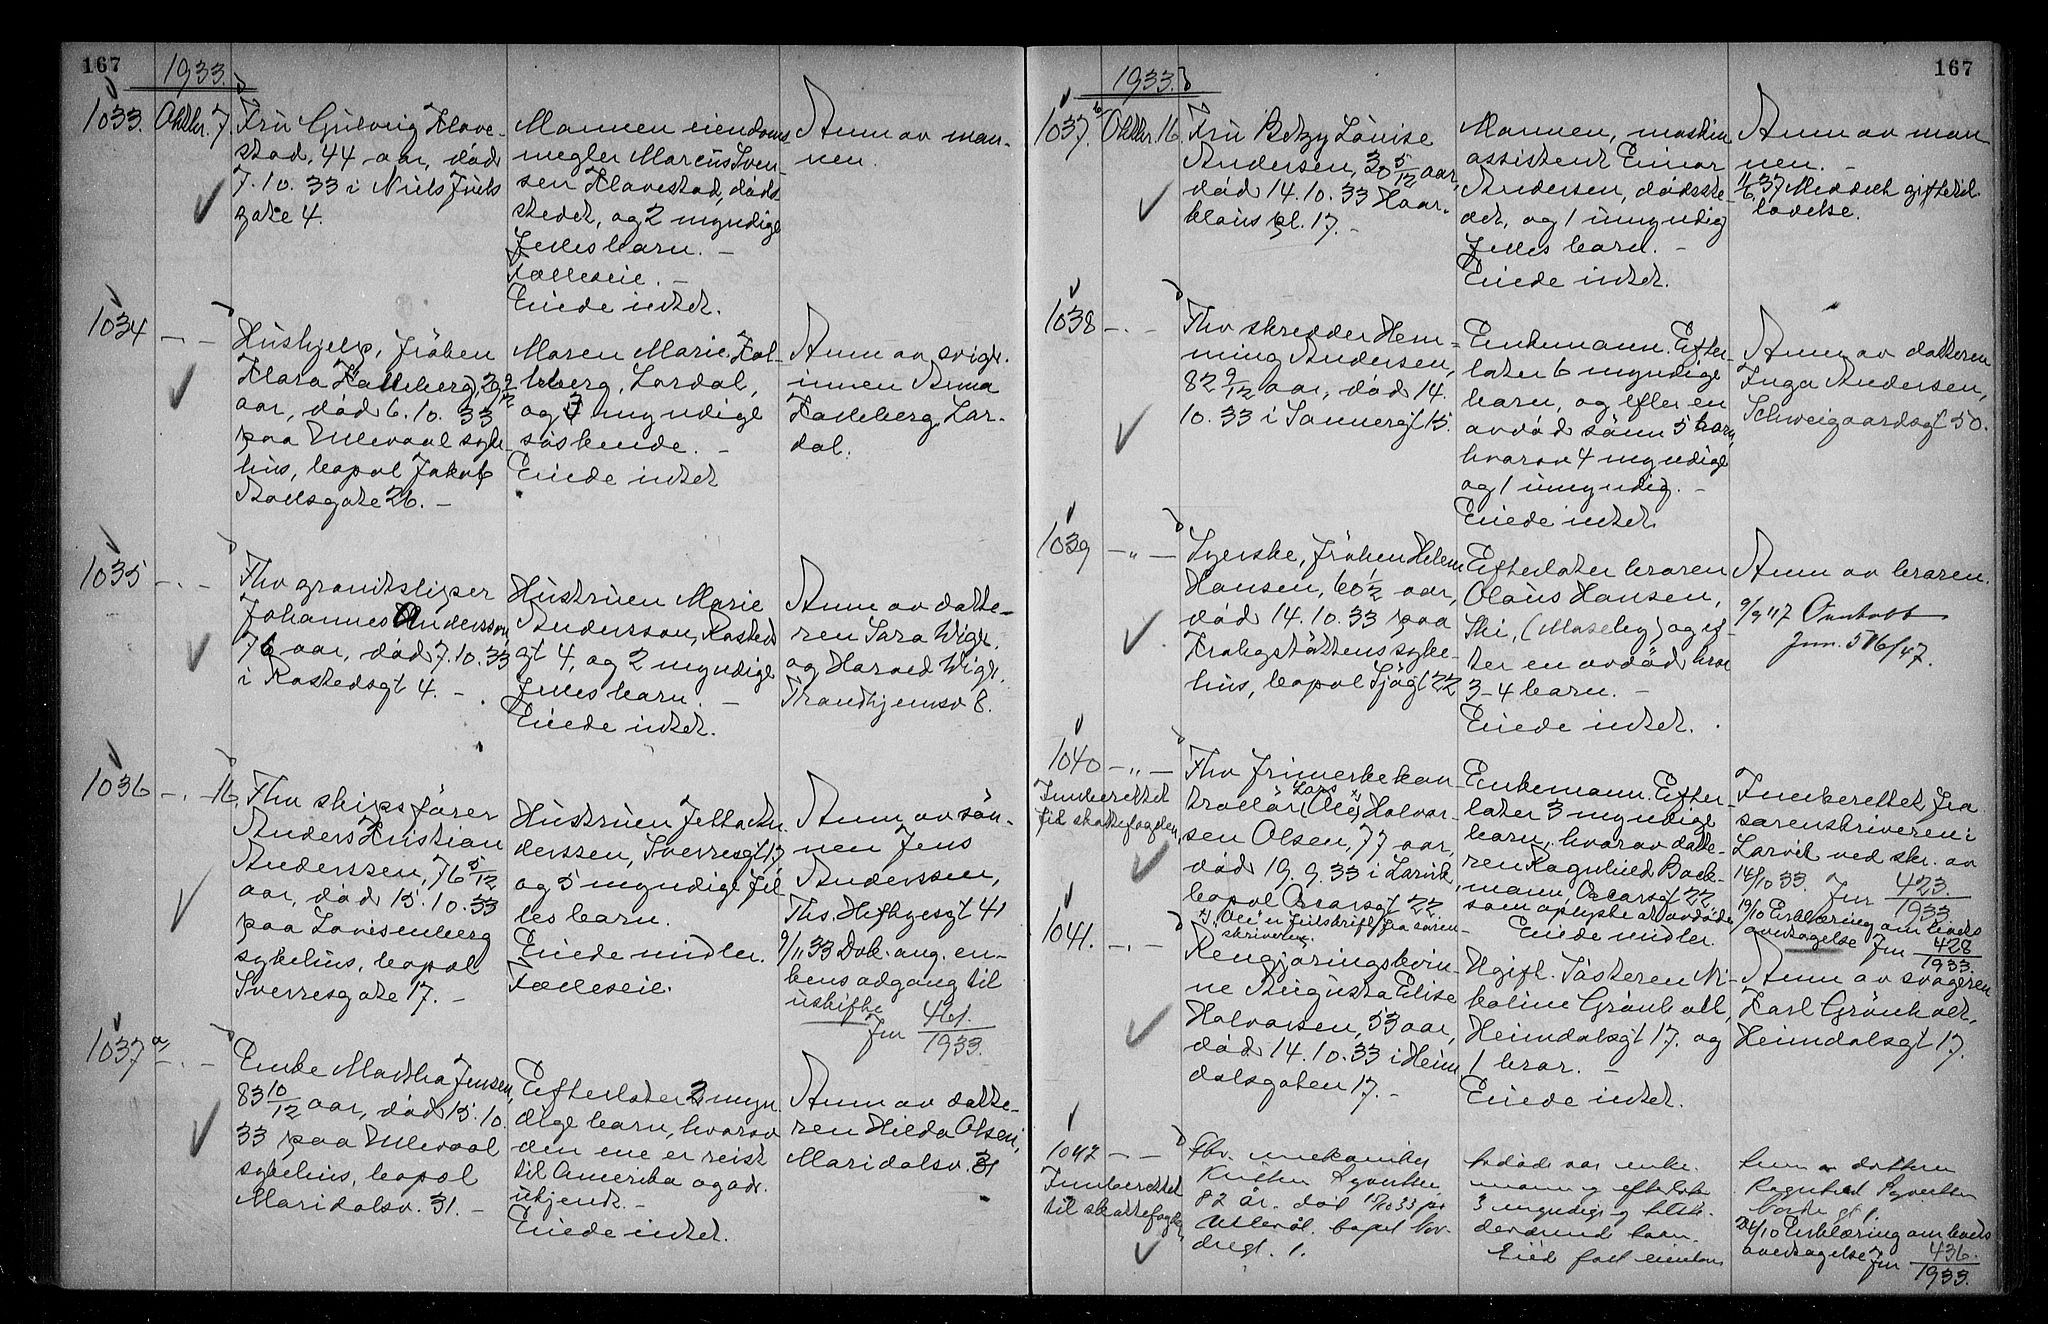 167
1933.
1033. Oktbr. 7
Fru Gulveig Klave-
stad, 44 aar, død
7.10.33 i Niels Juels
gate 4.
Mannen eiendoms
megler Marcus Sven-
sen Klavestad, døds-
stedet, og 2 myndige
felles barn. –
Fælleseie. –
Eiede intet.
Anm av man-
nen.
1034 – –
Hushjelp, frøken
Klara Falleberg, 39 2/12
aar, død 6.10.33
paa Ullevaal syke
hus, bopæl Jakob
Aallsgate 26. –
Maren Marie Fal-
leberg, Lardal,
og 3 myndige
søskende. –
Eiede intet
Anm av svige-
innen Anna
Falleberg, Lar-
dal.
1035 – . –
Fhv granitsliper
Johannes Andersson
76 aar, død 7.10.33
i Rostedsgt 4. –
Hustruen Marie
Andersson, Rosteds
gt 4, og 2 myndige
felles barn. –
Eiede intet.
Anm av datte-
ren Sara Wige.
og Harald Wige.
Trondhjemsv 8.
1036 – . – 16.
Fhv skipsfører
Anders Kristian
Anderssen, 76 5/12
aar, død 15.10.33
paa Lovisenberg
sykehus, bopæl
Sverresgate 17. –
Hustruen Jetta An-
derssen, Sverresgt 17
og 5 myndige fel
les barn.
Eiede midler.
Fælleseie.
Anm av søn-
nen Jens
Anderssen,
Ths. Heftyesgt 41
9/11 33 Dok. ang. en-
kens adgang til
uskifte
Jnr 461./1933.
1037 a – . –
Enke Martha Jensen,
83 10/12 aar, død 15.10.
33 paa Ullevaal
sykehus, bopæl
Maridalsv. 31. –
Efterlater 2 myn
dige barn, hvorav
den ene er reist
til Amerika og adr.
ukjendt. –
Eiede intet.
Anm av datte-
ren Hilda Olsen,
Maridalsv. 31
167
1933.
1037. b Oktbr. 16.
Fru Betzy Louise
Andersen, 30 5/12 aar,
død 14.10.33 Haar-
klous pl. 17. –
Mannen, maskin
assistent Einar
Andersen, dødsste-
det, og 1 umyndig
felles barn. –
Eiede intet.
Anm av man
nen. –
11/6 37 Meddelt giftetil
ladelse.
1038 – . –
Fhv skredder Hen-
ning Andersen,
82 9/12 aar, død 14.
10.33 i Sannergt 15.
Enkemann. Efter-
later 6 myndige
barn, og efter en
avdød sønn 5 barn
hvorav 4 myndige
og 1 umyndig. –
Eiede intet.
Anm av datteren
Inga Andersen,
Schweigaardsgt 50.
1039 – " –
Syerske, frøken Helene
Hansen, 60 1/2 aar,
død 14.10.33 paa
Krohgstøttens syke-
hus, bopæl Sjøgt 22
Efterlater broren
Olaus Hansen,
Ski, (Maseby) og ef-
ter en avdød bror
3-4 barn. –
Eiede intet.
Anm av broren.
9/9 47
Jnr. 516/47.
1040 – " –
Innberettet
til skattefogden.
Fhv frimerkekon
trollør Lars (Ole) x) Halvor-
sen Olsen, 77 aar,
død 19.9.33 i Larvik,
bopæl Oscarsgt 22
x) "Ole" er feilskrift fra soren-
skriveren.
Enkemann. Efter-
later 3 myndige
barn, hvorav datte-
ren Ragnhild Back-
mann, Oscarsgt 22
som oplyste at avdøde
Eiede midler.
Innberettet fra
sorenskriveren i
Larvik ved skr. av
14/10 33. Jnr 423./1933.
19/10 Erklæring om boets
overtagelse Jnr 428/1933.
1041. – . –
Rengjøringskvin-
ne Augusta Elise
Halvorsen, 53 aar,
død 14.10.33 i Heim
dalsgaten 17. –
Ugift. Søsteren Ni-
koline Grønholt,
Heimdalsgt 17. og
1 bror. –
Eiede intet.
Anm av svogeren
Karl Grønholt,
Heimdalsgt 17.
1042 – –
Innberettet
til skattefogden
Fhv. mekaniker
82 år. død 15/10 33 på
Ullevål. bopæl Nor-
dregt. 1.
Avdøde var enke-
mann og efterlater
3 myndige
barn.
Eied fast eiendom
Anm av datteren
Ragnhild
gt 1.
24/10 Erklæring om boets
overtagelse Jnr 436./1933.